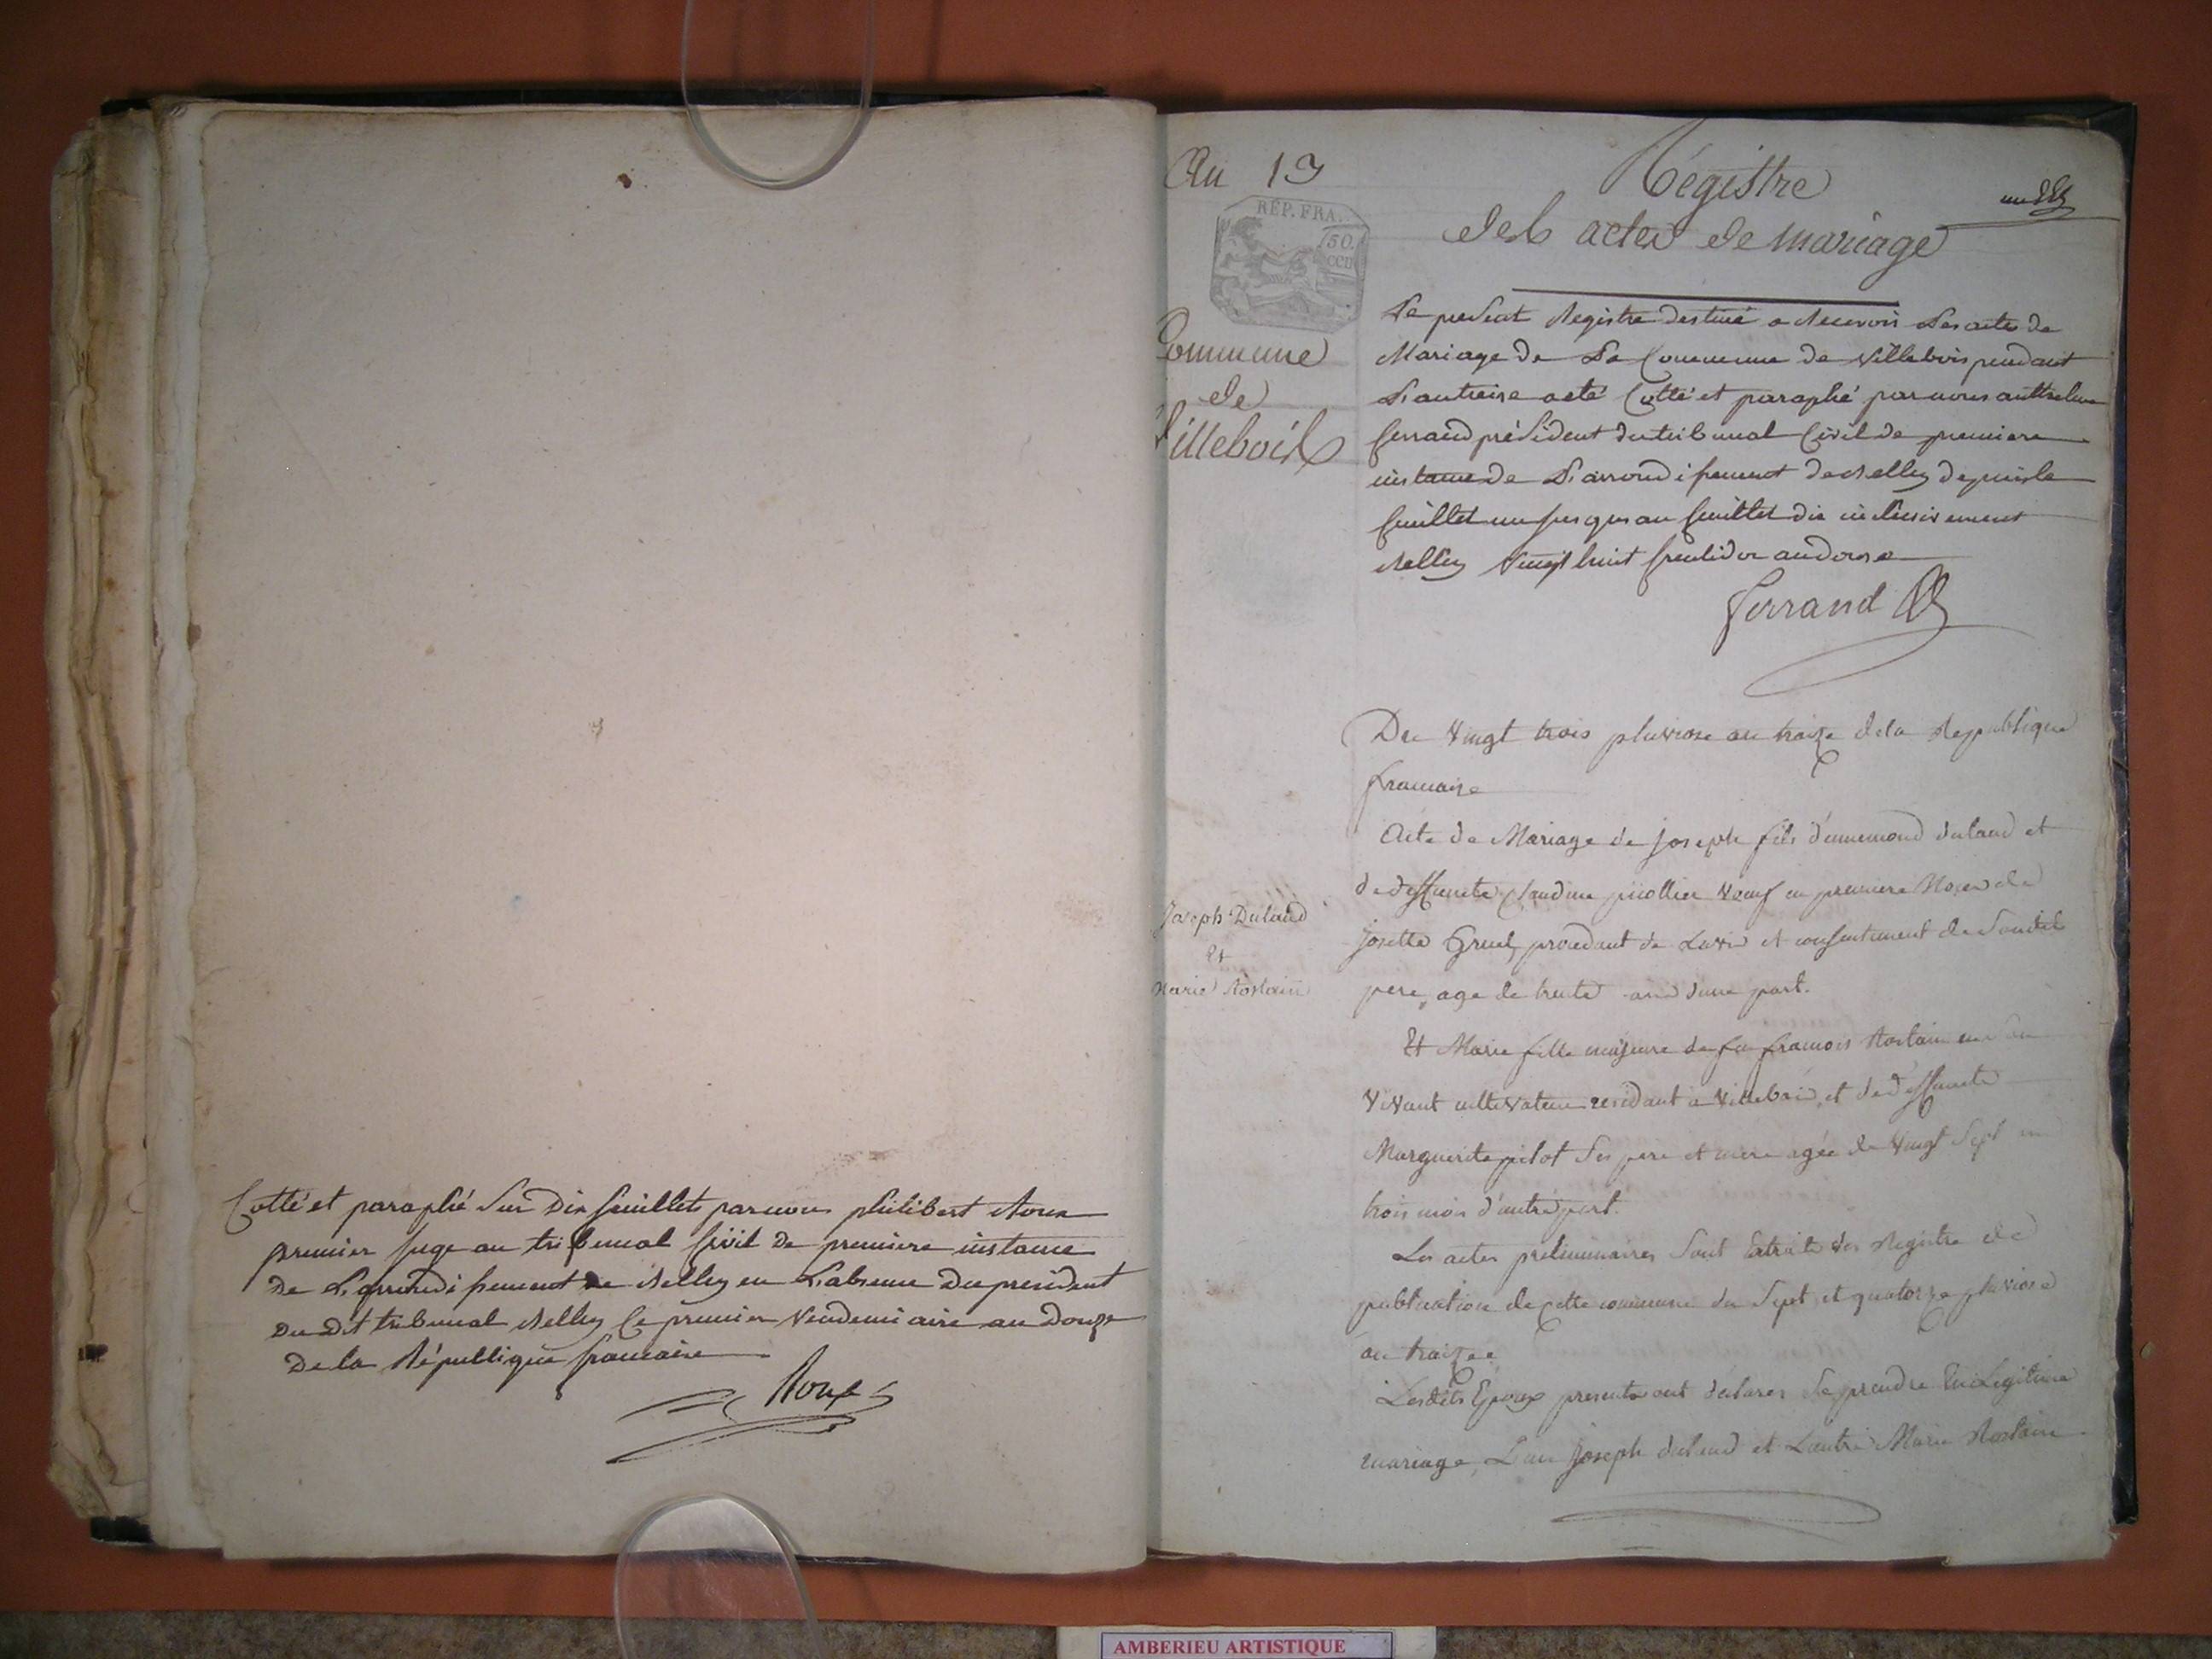 Cotté et paraphé sur dix feuillets par nous philibert Roux
premier juge au tribunal civil de premiere instance
de L'arrondissement de Belley en L'absence du president
du dit tribunal Belley le premier vendemiaire an douze
de la République francaise
Roux
An 13
REP. FRA.
50.
Commune
de
Villebois
Joseph Dulaud
Et
Marie Rostain
Régistre
des actes de mariage
Le present Registre destiné a Recevoir Les actes de
Mariage de La Commune de Villebois pendant
L'an treize a été Cotté et paraphé par nous anthelme
ferrand président du tribunal Civil de premiere
instance de L'arrondissement de Belley depuis le
feuillet un jusques au feuillet dix inclusivement
Belley Vingt huit fructidor an douze
ferrand
Du Vingt trois pluviose an traize de la Republique
francaise
Acte de Mariage de joseph fils d'ennemond dulaud et
de deffuncte Claudine veuf en premiere Noces de
josette procedant de Lavis et consentement de Sondit
pere, age de trente ans d'une part.
Et Marie fille majeure de feu francois Rostain en son
Vivant cultivateur residant a Villebois, et de deffuncte
Marguerite pilot Ses pere et mere agée de Vingt Sept ans
trois mois d'autre part.
Les actes preliminaires Sont Extraits des Registre de
publication de cette commune du Sept et quatorze pluviose
an traize
Lesdits Epoux presents ont declarer Se prendre En Legitime
mariage, L'un joseph dulaud et L'autre Marie Rostain
AMBERIEU ARTISTIQUE